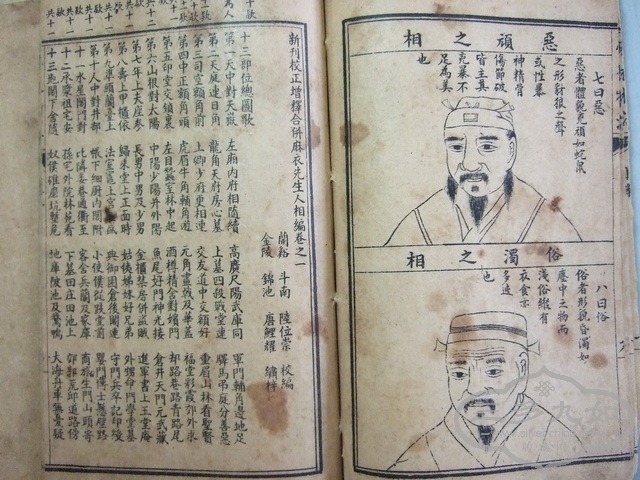 惡頑之相
七曰惡
惡者體貌兇頑如蛇鼠
之形豺狼之聲
或性暴
神精骨
傷節破
皆主其
兇暴不
足為美
也
俗濁之相
八曰俗
俗者形貌昏濁如
塵中之物而
淺俗縱有
衣食亦
多迍
也
新刊校正增釋合併麻衣先生人相編卷之一
蘭谿 斗南 陸位崇 校編
金陵 錦池 唐鯉耀 繡梓
十三部位總圖歌
第一天中對天嶽 左廂內府相隨續 高廣尺陽武庫同 軍門輔角邊地足
第二天庭連日角 龍角天府房心墓 上墓四殺戰堂連 驛馬弔庭分善惡
第三司空額角前 上卿少府更相連 交友道中交額好 重眉山林看聖賢
第四中正額角頭 虎眉牛角輔角遊 元角畫戟及華蓋 福堂彩霞郊外求
第五印堂交鎖裏 左目蠶室林中起 酒樽精舍對嬪門 劫路巷路青路尾
第六山根對太陽 中陽少陽并外陽 魚尾奸門神光接 倉井天門元武藏
第七年上夫座參 長男中男及少男 金櫃禁房併盜賊 進軍書上玉堂庵
第八壽上甲櫃依 歸來堂上正面時 姑姨姊妹好兄弟 外甥命門學堂基
第九準頭蘭臺上 法令竈上宮室盛 典御園倉後閣連 守門兵卒記印綬
第十人中對井部 帳下細廚內閣附 小使僕從妓堂前 嬰門博士懸壁路
十一水星閤門對 比鄰委巷通衢至 客舍兵蘭及家庫 商旅生門山頭寄
十二承漿祖宅安 孫宅外院林苑看 下墓田庄田池上 郊郭荒丘道路傍
十三地閣下舍隨 奴僕碓磨坑塹危 地庫陂池及鵝鴨 大海舟車無憂疑